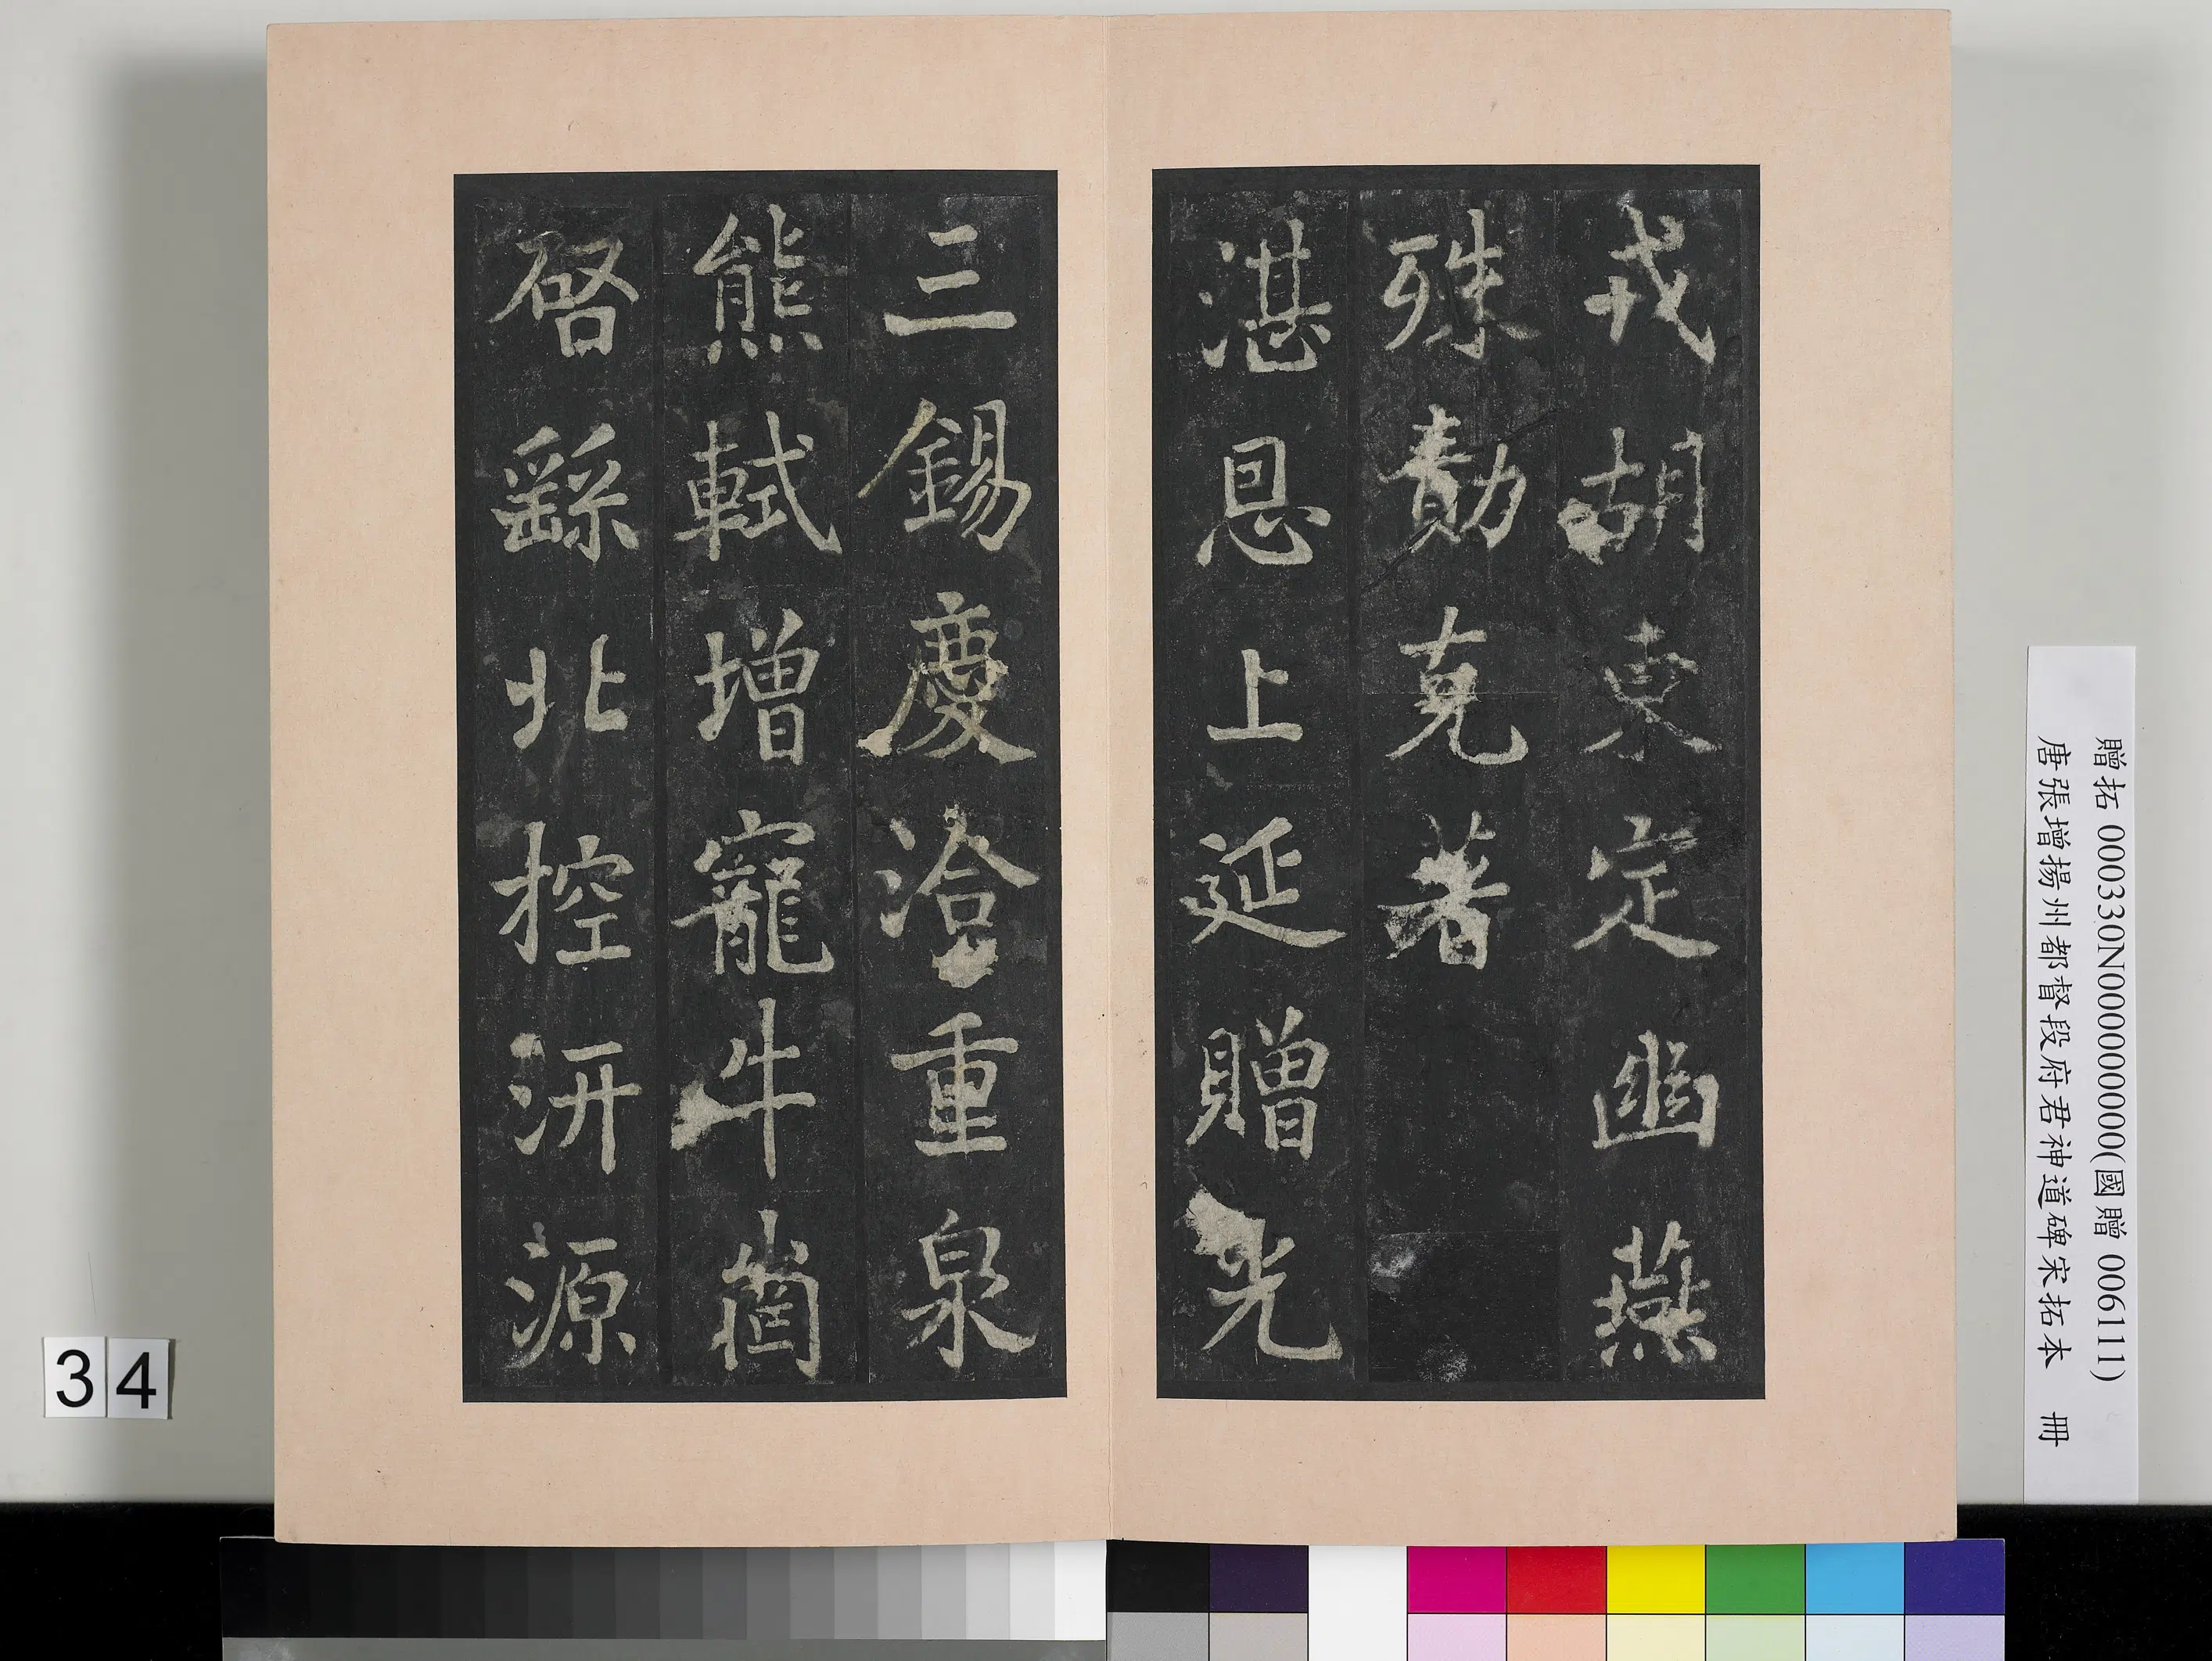 戎胡東定幽燕
殊勳克著
湛恩上延贈光
三錫慶洽重泉
熊軾增寵牛崗
啓繇北控汧源
贈拓 000330N000000000(國贈 006111)
唐張增揚州都督段府君神道碑宋拓本 冊
34